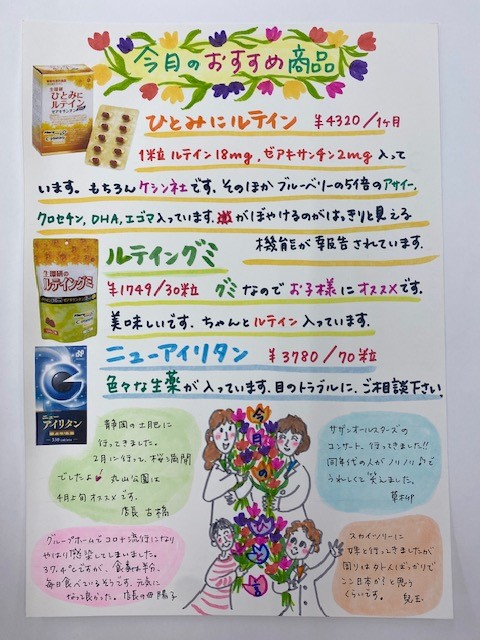 今月のおすすめ商品
生環研
ひとみに
ルテイン
ひとみにルテイン ¥4320/1ヶ月
1粒 ルテイン18mg,ゼアキサンチン2mg 入って
います。もちろんケシン社です。そのほかブルーベリーの5倍のアサイー,
クロセチン,DHA,エゴマ入っています。がぼやけるのがはっきりと見える
機能が報告されています。
生環研の
ルテイングミ
ルテイングミ
¥1749/30粒 グミなのでお子様にオススメです。
美味しいです。ちゃんとルテイン入っています。
ニュー
アイリタン
ニューアイリタン ¥3780/70粒
色々な生薬が入っています。目のトラブルに、ご相談下さい。
静岡の土肥に
行ってきました。
2月に行って、桜満開
でしたよ 丸山公園は
4月上旬オススメです。
店長 古橋
サザンオールスターズの
コンサート、行ってきました!!
同年代の人がノリノリで
うれしくて笑えました。
草村
グループホームでコロナ流行になり
やはり感染してしまいました。
37.4℃ですが、食事は半分、
毎日食べているそうです。元気に
なって良かった。店長の母 陽子
スカイツリーに
女半と行ってきましたが
周りは外人ばっかりで
ここ日本か?と思う
くらいです。 児玉
今月の